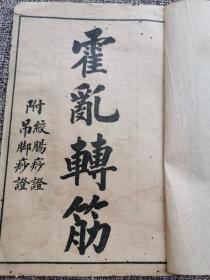 霍亂轉筋
附絞腸痧證
吊脚痧證